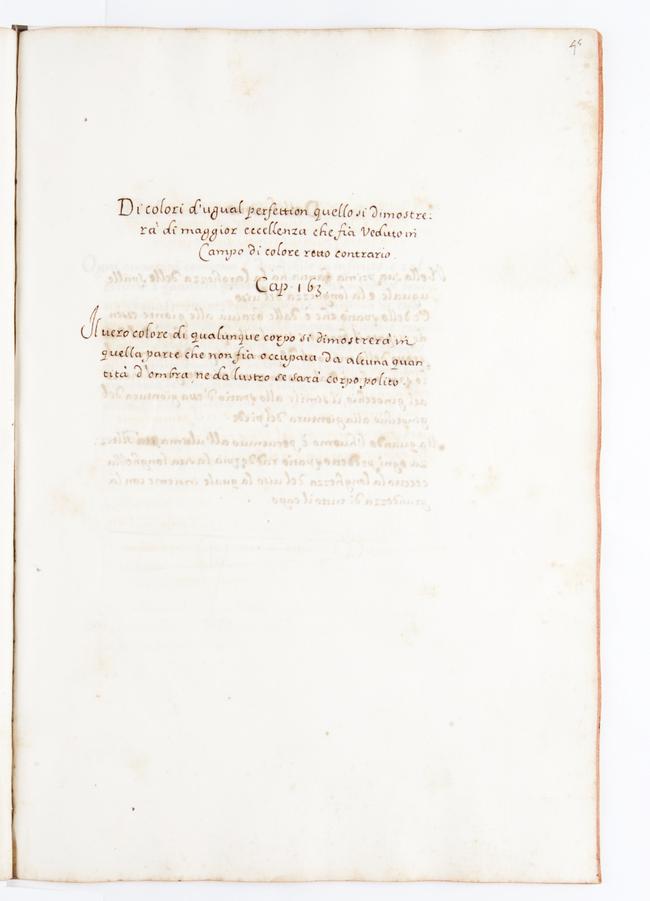 45
Di colori d'ugual perfettion quello si dimostre:
rà di maggior eccellenza che fià veduto in
Campo di colore retto contrario.
Cap. 163
Il vero colore di qualunque corpo si dimostrerà in
quella parte che non fià occupata da alcuna quan
tità d'ombra, ne da lustro se sarà corpo polito